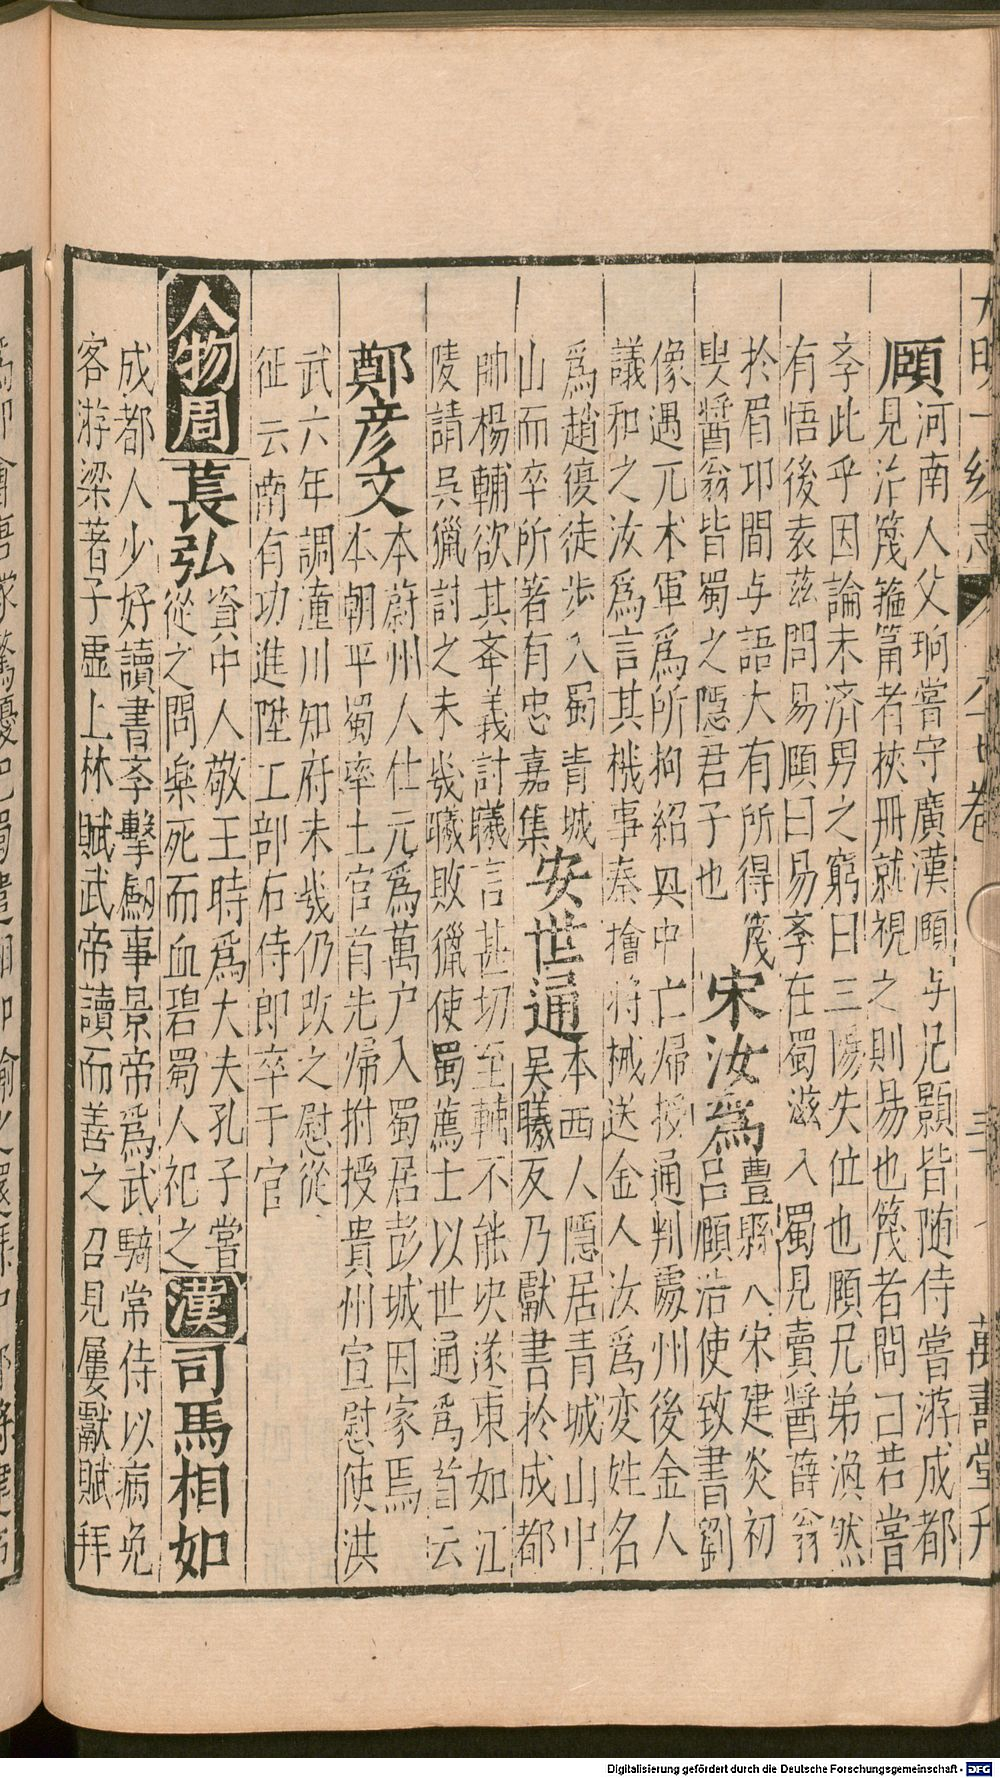 大明一統志 六十七卷 三十 萬壽堂刊
頤
河南人父珦嘗守廣漢頤与兄顥皆随侍嘗游成都
見治篾箍筩者挾冊就視之則易也篾者問曰若嘗
斈此乎因論未濟男之窮曰三陽失位也頤兄弟渙然
有悟後袁茲問易頤曰易斈在蜀滋入蜀見賣醬薛翁
於眉邛間与語大有所得篾
叟醬翁皆蜀之隱君子也
宋汝為
豊縣人宋建炎初
呂頤浩使致書劉
像遇兀术軍爲所拘紹興中亡歸授通判處州後金人
議和之汝爲言其機事秦擒将械送金人汝爲变姓名
爲趙復徒步入蜀青城
山而卒所著有忠嘉集
安世通
本西人隱居青城山中
吴曦反乃獻書於成都
帥楊輔欲其奉義討曦言甚切至輔不能决遂東如江
陵請吳獵討之未㡬曦敗獵使蜀薦士以世通爲首云
鄭彦文
本蔚州人仕元爲萬户入蜀居彭城因家焉
本朝平蜀率土官首先歸拊授貴州宣慰使洪
武六年調潼川知府未㡬仍改之慰從
征云南有功進陞工部右侍郎卒于官
人物周
萇弘
資中人敬王時爲大夫孔子嘗
從之問樂死而血碧蜀人祀之
漢
司馬相如
成都人少好讀書斈擊劒事景帝爲武騎常侍以病免
客游梁著子虛上林賦武帝讀而善之召見屢獻賦拜
Digitalisierung gefördert durch die Deutsche Forschungsgemeinschaft - DFG